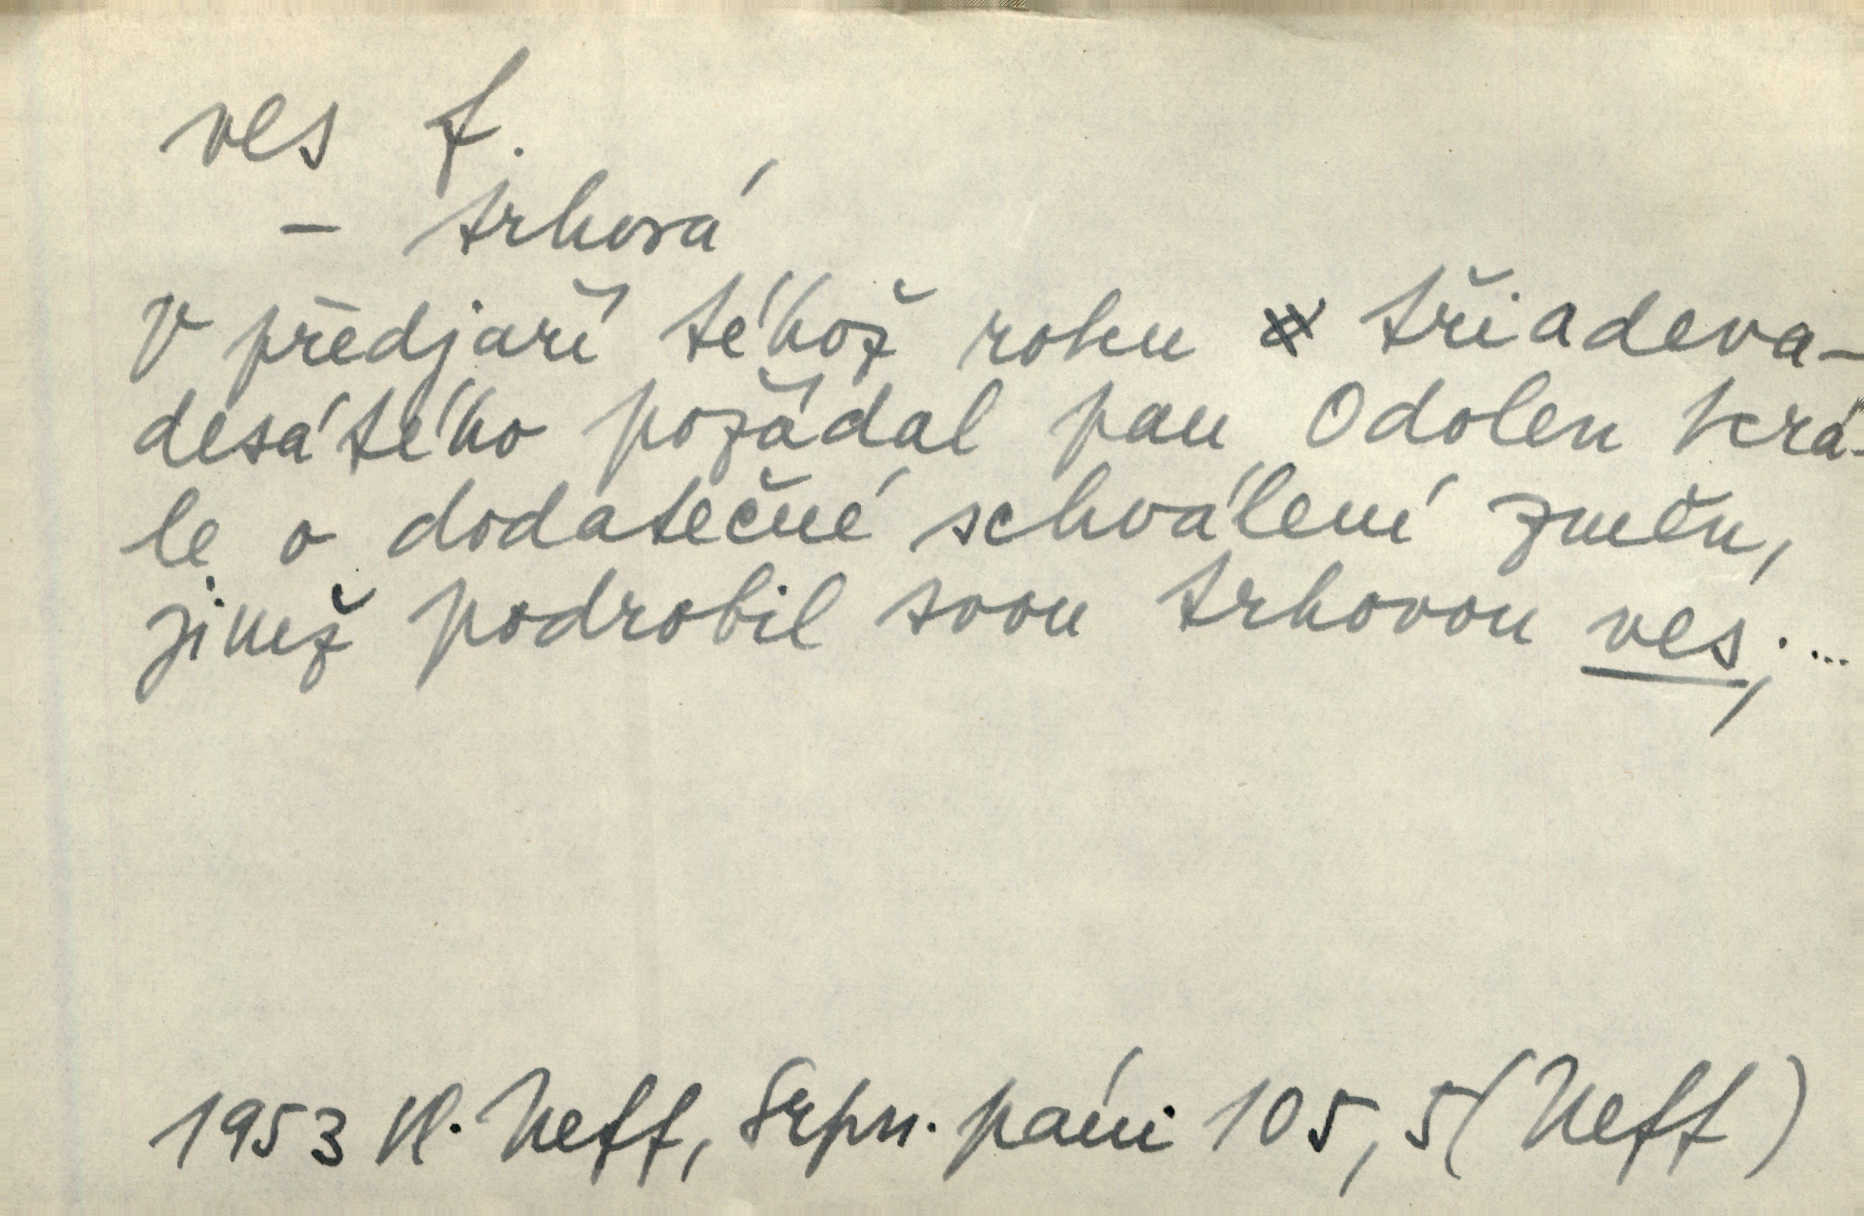 ves f.
- trhová
V předjaří téhož roku třiadeva-
desátého požádal pan Odolen krá-
le o dodatečné schválení změn,
jimž podrobil svou trhovou ves; ...
1953 Vl. Neff, Srpn. páni 105, 5 (Neff)